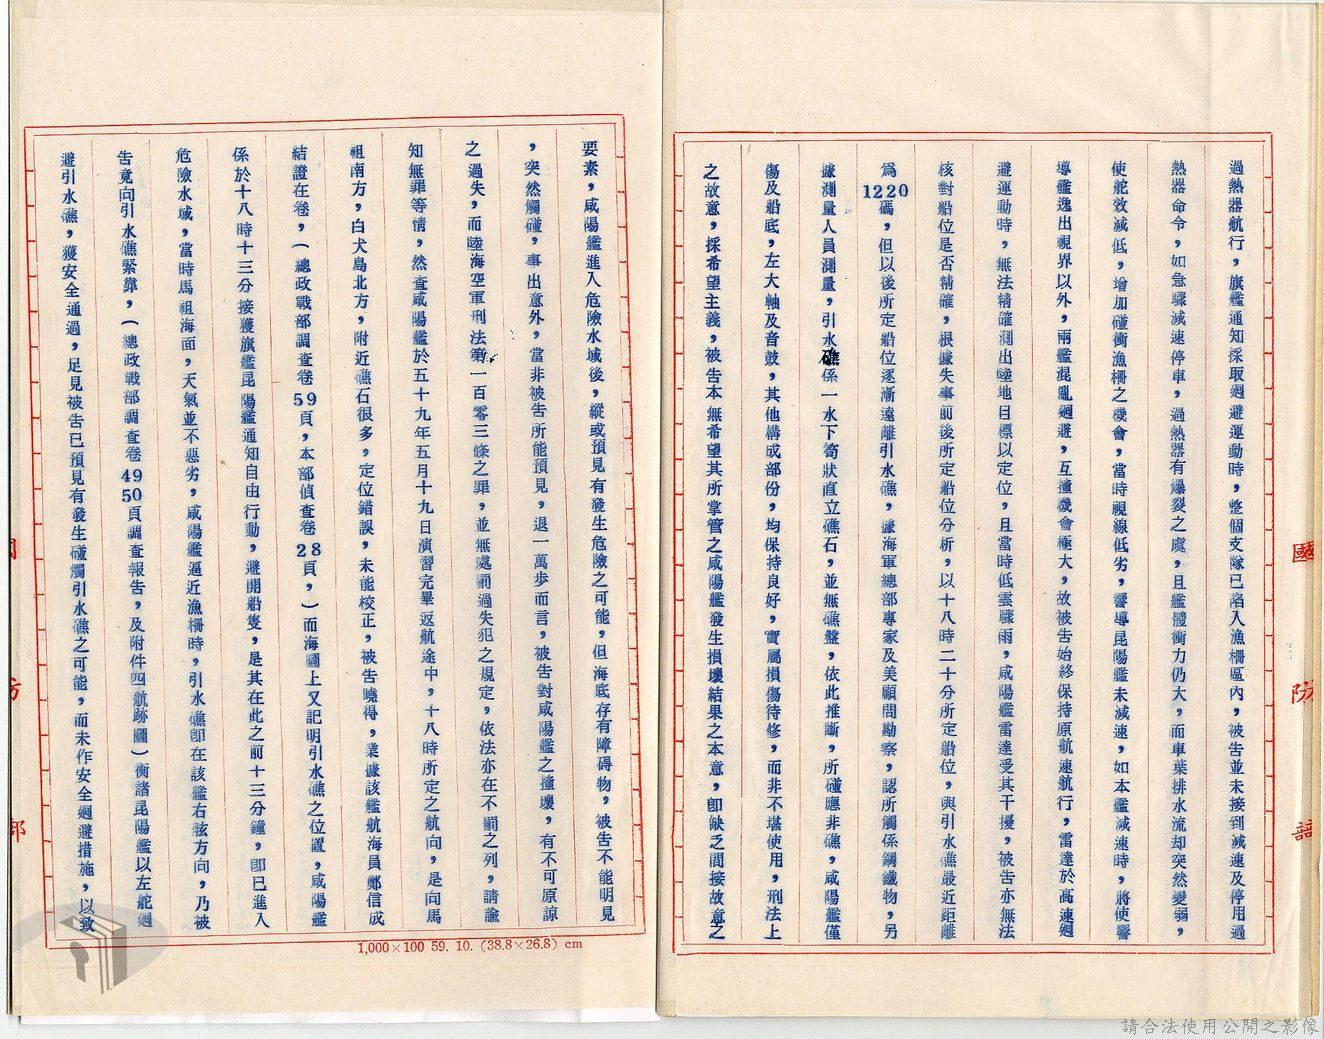 過熱器航行，旗艦通知採取廻避運動時，整個支隊已陷入漁柵區內，被告並未接到減速及停用過
熱器命令，如急驟減速停車，過熱器有爆裂之虞，且艦體衝力仍大，而車葉排水流却突然變弱，
使舵效減低，增加碰衝漁柵之機會，當時視線低劣，嚮導昆陽艦未減速，如本艦減速時，將使嚮
導艦逸出視界以外，兩艦混亂廻避，互撞機會極大，故被告始終保持原航速航行，雷達於高速廻
避運動時，無法精確測出陸地目標以定位，且當時低雲驟雨，咸陽艦雷達受其干擾，被告亦無法
核對船位是否精確，根據失事前後所定船位分析，以十八時二十分所定船位，與引水礁最近距離
為1220碼，但以後所定船位逐漸遠離引水礁，據海軍總部專家及美顧問勘察，認所觸係鋼鐵物，另
據測量人員測量，引水礁係一水下筍狀直立礁石，並無礁盤，依此推斷，所碰應非礁，咸陽艦僅
傷及船底，左大軸及音鼓，其他構成部份，均保持良好，實屬損傷待修，而非不堪使用，刑法上
之故意，採希望主義，被告本無希望其所掌管之咸陽艦發生損壞結果之本意，即缺乏間接故意之
要素，咸陽艦進入危險水域後，縱或預見有發生危險之可能，但海底存有障碍物，被告不能明見
，突然觸碰，事出意外，當非被告所能預見，退一萬步而言，被告對咸陽艦之撞壞，有不可原諒
之過失，而陸海空軍刑法第一百零三條之罪，並無處罰過失犯之規定，依法亦在不罰之列，請諭
知無罪等情，然查咸陽艦於五十九年五月十九日演習完畢返航途中，十八時所定之航向，是向馬
祖南方，白犬島北方，附近礁石很多，定位錯誤，未能校正，被告曉得，業據該艦航海員鄭信成
結證在卷，（總政戰部調查卷59頁，本部偵查卷28頁，）而海圖上又記明引水礁之位置，咸陽艦
係於十八時十三分接獲旗艦昆陽艦通知自由行動，避開船隻，是其在此之前十三分鐘，即已進入
危險水域，當時馬祖海面，天氣並不惡劣，咸陽艦逼近漁柵時，引水礁即在該艦右舷方向，乃被
告竟向引水礁緊靠，（總政戰部調查卷49 50頁調查報告，及附件四航跡圖）衡諸昆陽艦以左舵廻
避引水礁，獲安全通過，足見被告已預見有發生碰觸引水礁之可能，而未作安全廻避措施，以致
1,000×100 59. 10. (38.8×26.8) cm
國防部
請合法使用公開之影像